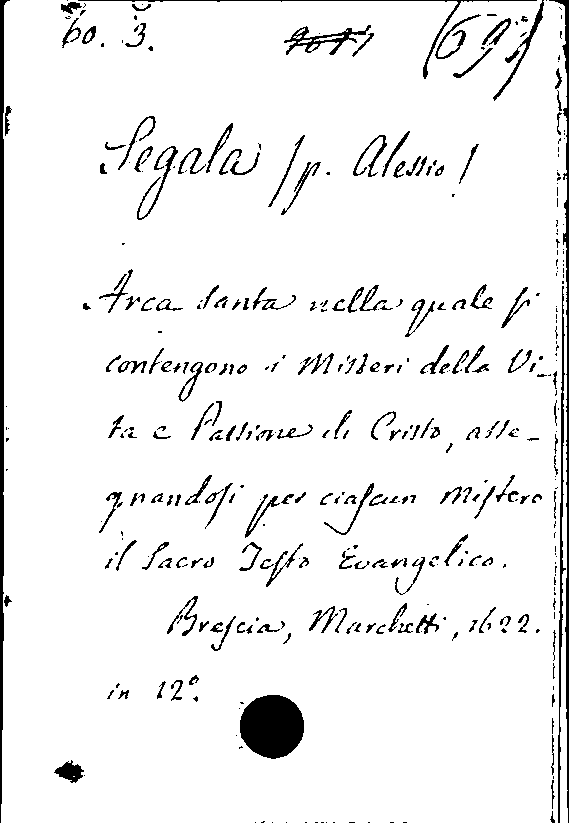 60. 3.
Segala /p. Alessio/
Arca santa nella quale si
contengono i Misteri della Vi-
ta e Passione di Cristo, asse-
gnandosi per ciascun mistero
il Sacro Testo Evangelico.
Brescia, Marchetti, 1622.
in 12º.